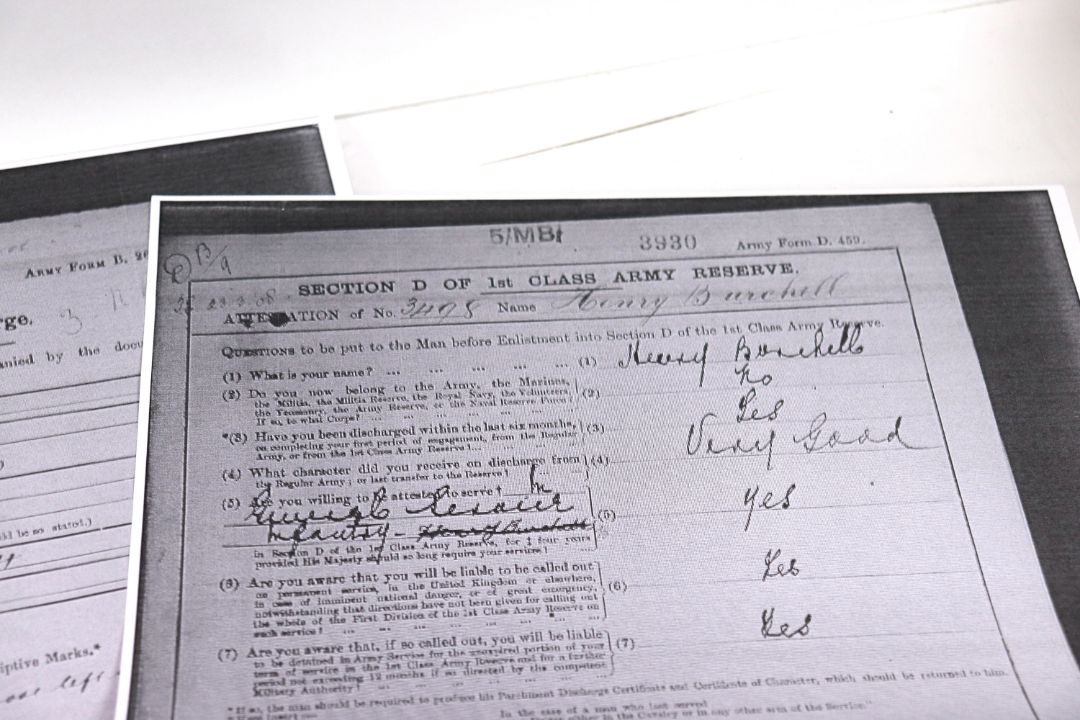 ARMY FORM B.
anied by the docu
ld be so stated.)
iptive Marks.*
5/MB
3930
Army Form D. 459.
SECTION D OF 1st CLASS ARMY RESERVE.
ATTESTATION of No. 3498 Name Henry Burchell
QUESTIONS to be put to the Man before Enlistment into Section D of the 1st Class Army Reserve.
(1) What is your name? ... ... ... ... ... (1) Henry Burchell
(2) Do you now belong to the Army, the Marines, the Militia, the Militia Reserve, the Royal Navy, the Volunteers, the Yeomanry, the Army Reserve, or the Naval Reserve Force? If so, to what Corps? (2) No
*(3) Have you been discharged within the last six months, on completing your first period of engagement, from the Regular Army, or from the 1st Class Army Reserve? (3) Yes
(4) What character did you receive on discharge from the Regular Army; or last transfer to the Reserve? (4) Very Good
(5) Are you willing to be attested to serve † In
Infantry –
in Section D of the 1st Class Army Reserve, for ‡ four years provided His Majesty should so long require your services? (5) yes
(6) Are you aware that you will be liable to be called out on permanent service, in the United Kingdom or elsewhere, in case of imminent national danger, or of great emergency, notwithstanding that directions have not been given for calling out the whole of the First Division of the 1st Class Army Reserve on such service? (6) Yes
(7) Are you aware that, if so called out, you will be liable to be detained in Army Service for the unexpired portion of your term of service in the 1st Class Army Reserve and for a further period not exceeding 12 months if so directed by the competent Military Authority? (7) Yes
* If so, the man should be required to produce his Parchment Discharge Certificate and Certificate of Character, which should be returned to him.
In the case of a man who last served
either in the Cavalry or in any other arm of the Service."